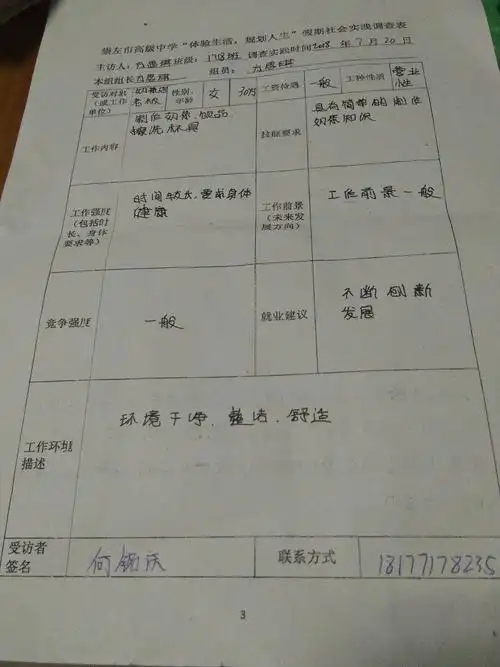 崇左市高级中学“体验生活，规划人生”假期社会实践调查表
主访人： 班级：178班 调查实践时间2018年7月20日
本组组长 组员：
受访对象（或工作单位） 奶茶店老板 性别、年龄 女 30 工资待遇 一般 工种性质 营业性
工作内容 制作奶茶、饮品 清洗杯具
技能要求 具有简单的制作奶茶知识
工作强度（包括时长、身体要求等） 时间较长，要求身体健康
工作前景（未来发展方向） 工作前景一般
竞争强度 一般
就业建议 不断创新发展
工作环境描述 环境干净、整洁、舒适
受访者签名 何 联系方式 18177178235
3